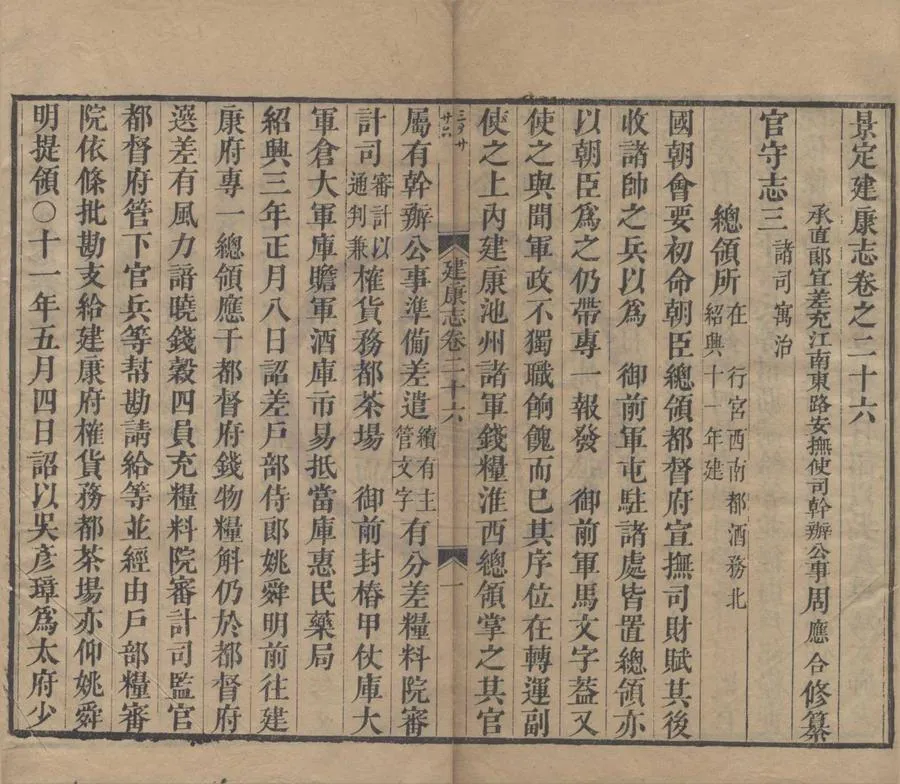 景定建康志卷之二十六
承直郎宜差充江南東路安撫使司幹辦公事周應合修纂
官守志三 諸司寓治
總領所 在 行宮西南都酒務北紹興十一年建
國朝會要初命朝臣總領都督府宣撫司財賦其後
收諸帥之兵以爲 御前軍屯駐諸處皆置總領亦
以朝臣爲之仍帶專一報發 御前軍馬文字葢又
使之與聞軍政不獨職餉餽而已其序位在轉運副
使之上內建康池州諸軍錢糧淮西總領掌之其官
建康志卷二十六 一
屬有幹辦公事準備差遣 續有主管文字 有分差糧料院審
計司 審計以通判兼 榷貨務都茶場 御前封樁甲仗庫大
軍倉大軍庫贍軍酒庫市易抵當庫惠民藥局
紹興三年正月八日詔差戶部侍郎姚舜明前往建
康府專一總領應干都督府錢物糧斛仍於都督府
選差有風力諳曉錢穀四員充糧料院審計司監官
都督府管下官兵等幫勘請給等並經由戶部糧審
院依條批勘支給建康府榷貨務都茶場亦仰姚舜
明提領〇十一年五月四日詔以吳彥璋爲太府少